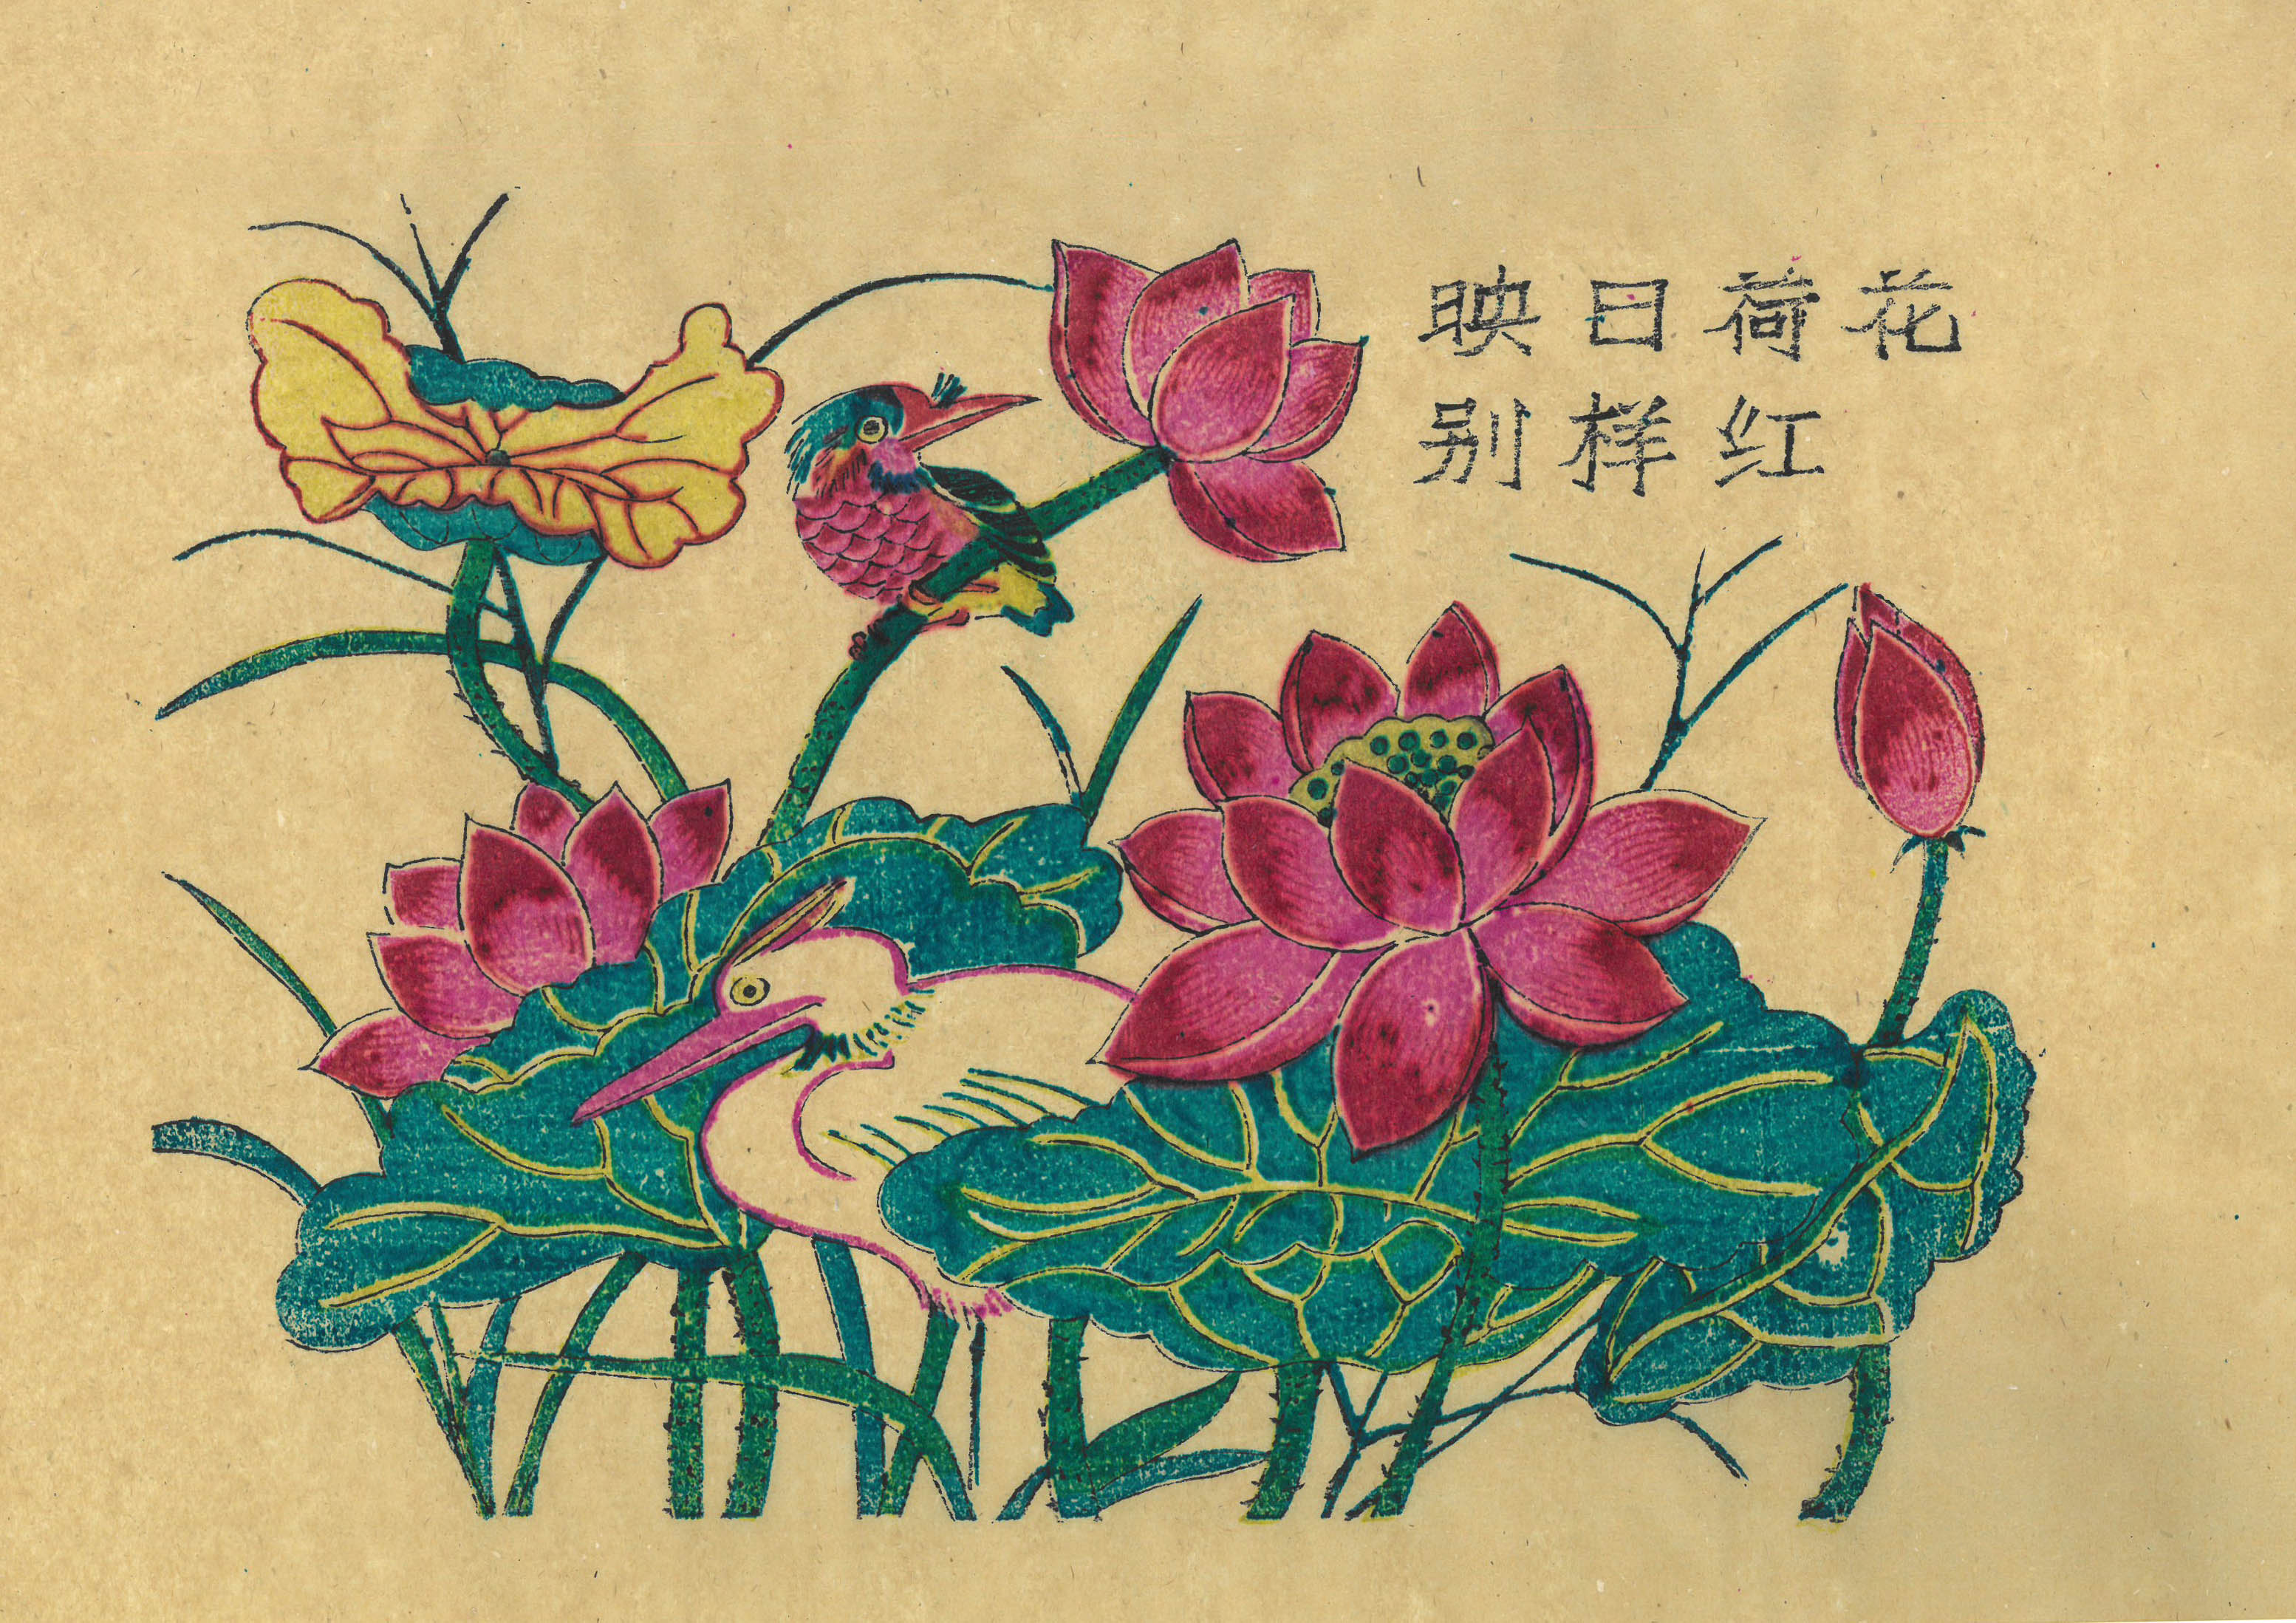 映日荷花
别样红